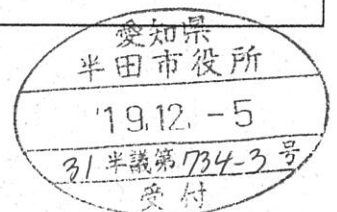 愛知県
半田市役所
'19.12.-5
31半議第734-3号
受付